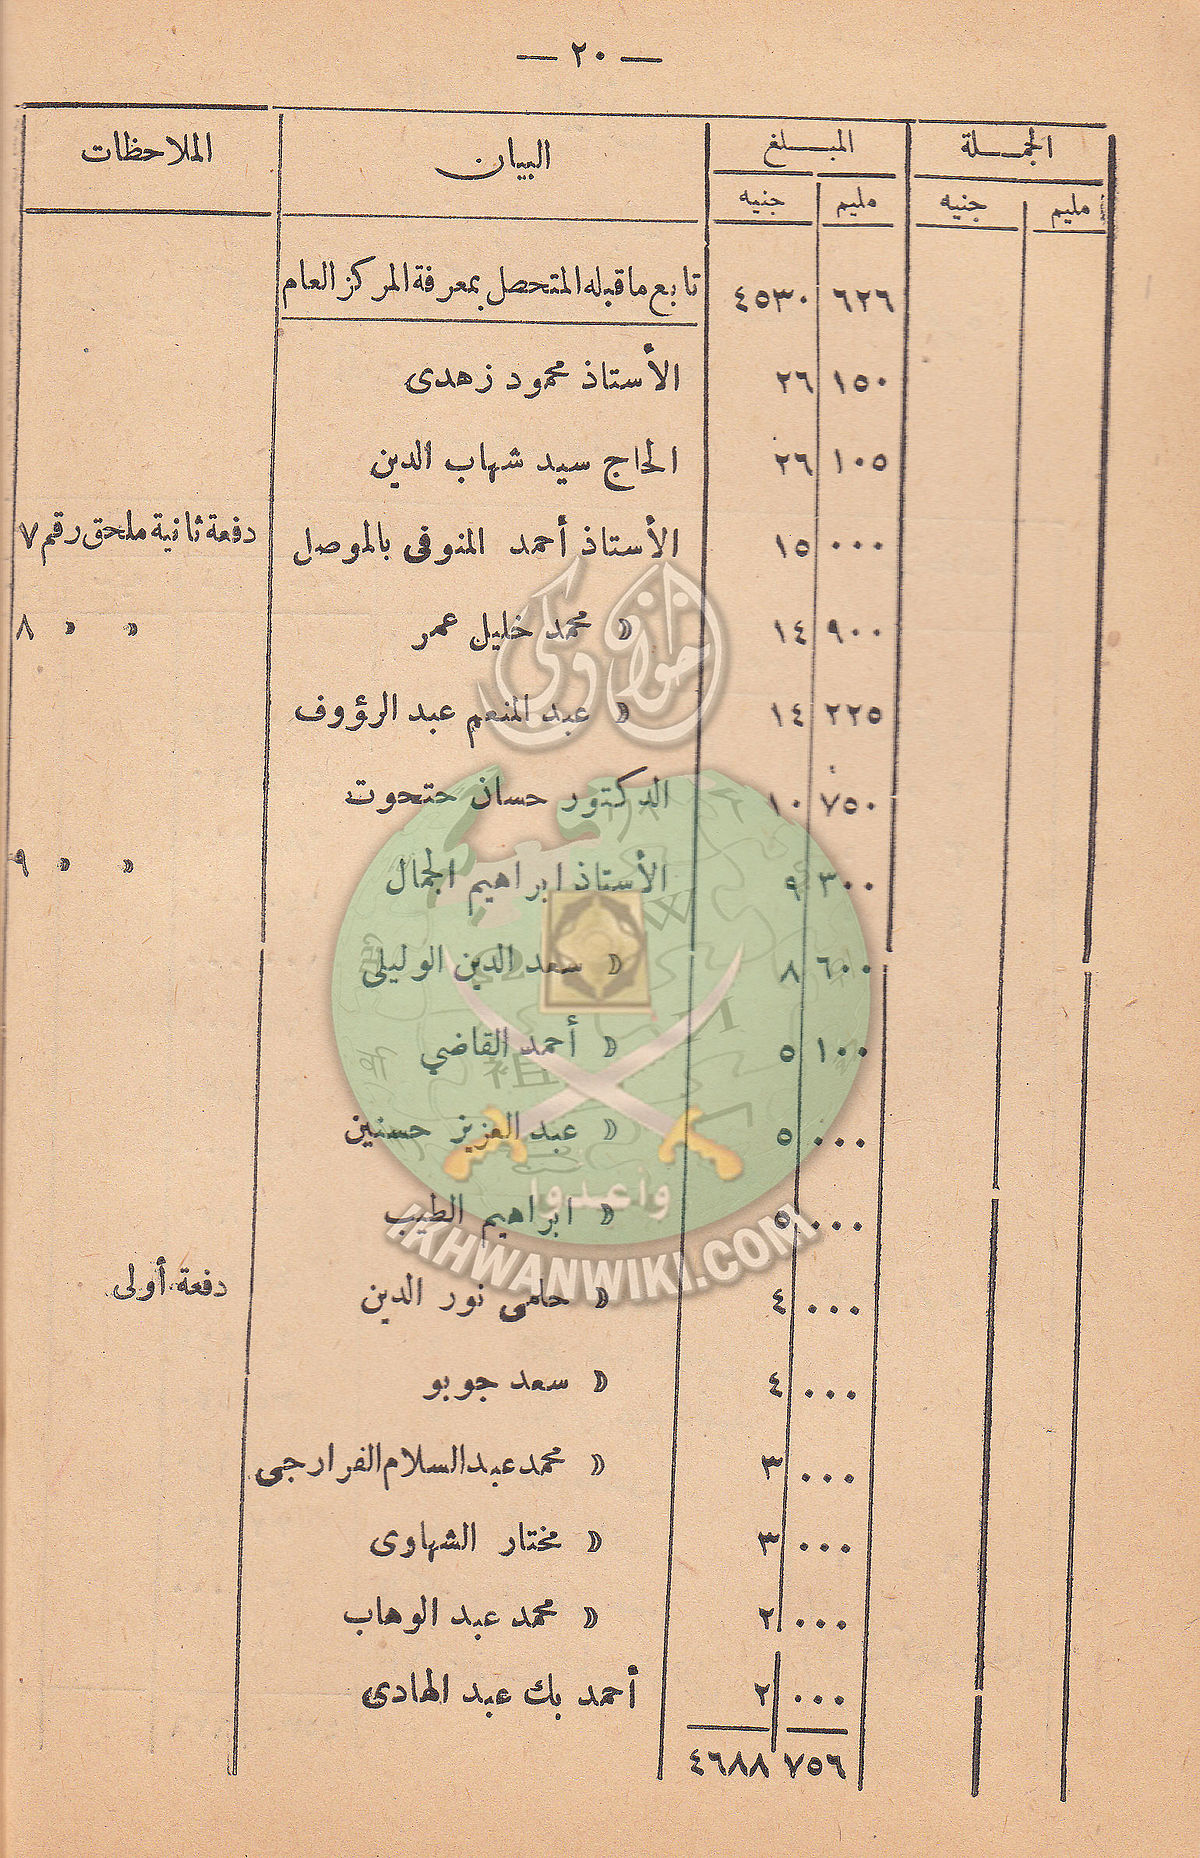 — ٢٠ —
الجمـلة المبـلغ البيان الملاحظات
مليم جنيه مليم جنيه
٦٢٦ ٤٥٣٠ تابع ماقبله المتحصل بمعرفة المركز العام
١٥٠ ٢٦ الأستاذ محمود زهدى
١٠٥ ٢٦ الحاج سيد شهاب الدين
٠٠٠ ١٥ الأستاذ أحمد المنوفى بالموصل دفعة ثانية ملحق رقم ٧
٩٠٠ ١٤ » محمد خليل عمر » » ٨
٢٢٥ ١٤ » عبد المنعم عبد الرؤوف
٧٥٠ ١٠ الدكتور حسان حتحوت
٣٠٠ ٩ الأستاذ ابراهيم الجمال » » ٩
٦٠٠ ٨ » سعد الدين الوليلى
١٠٠ ٥ » أحمد القاضي
٠٠٠ ٥ » عبد العزيز حسنين
٠٠٠ ٥ » ابراهيم الطيب
٠٠٠ ٤ » حلمى نور الدين دفعة أولى
٠٠٠ ٤ » سعد جوبو
٠٠٠ ٣ » محمد عبد السلام الفرارجى
٠٠٠ ٣ » مختار الشهاوى
٠٠٠ ٢ » محمد عبد الوهاب
٠٠٠ ٢ أحمد بك عبد الهادى
٧٥٦ ٤٦٨٨
إخوان ويكي
واعدوا
IKHWANWIKI.COM